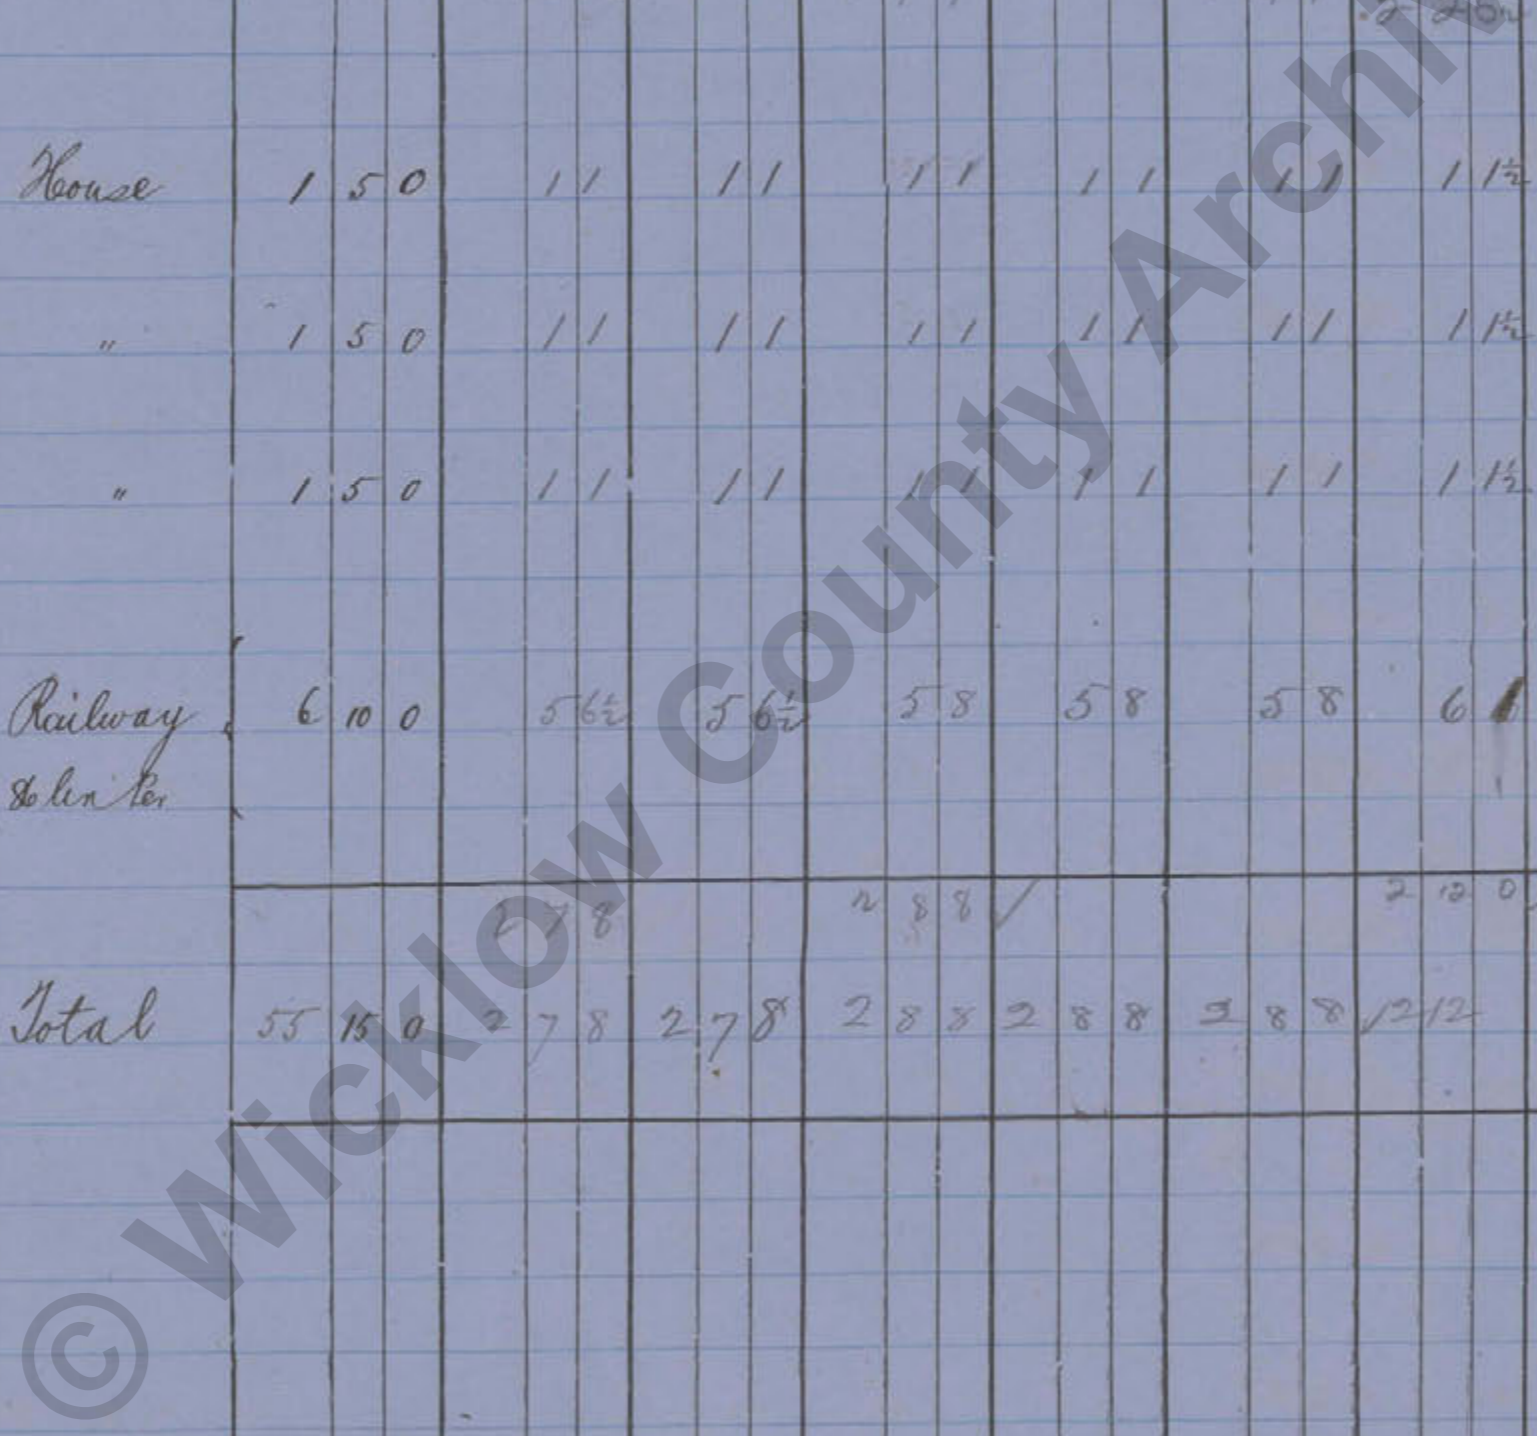 House 1 5 0 1 1 1 1 1 1 1 1 1 1 1 1½
" 1 5 0 1 1 1 1 1 1 1 1 1 1 1 1½
" 1 5 0 1 1 1 1 1 1 1 1 1 1 1 1½
Railway 6 10 0 5 6½ 5 6½ 5 8 5 8 5 8 6
2 7 8 2 8 8 ✓ 2 12 0
Total 55 15 0 2 7 8 2 7 8 2 8 8 2 8 8 2 8 8 ✓ 2 12
© Wicklow County Archiv